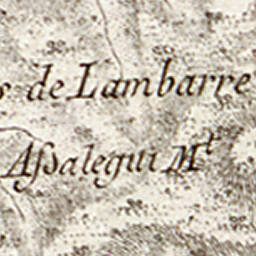 s de Lambarre
Aſſalegui Mᵗ